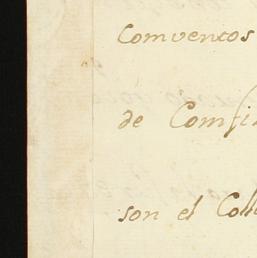 Comventos
de Comfi
son el Coll